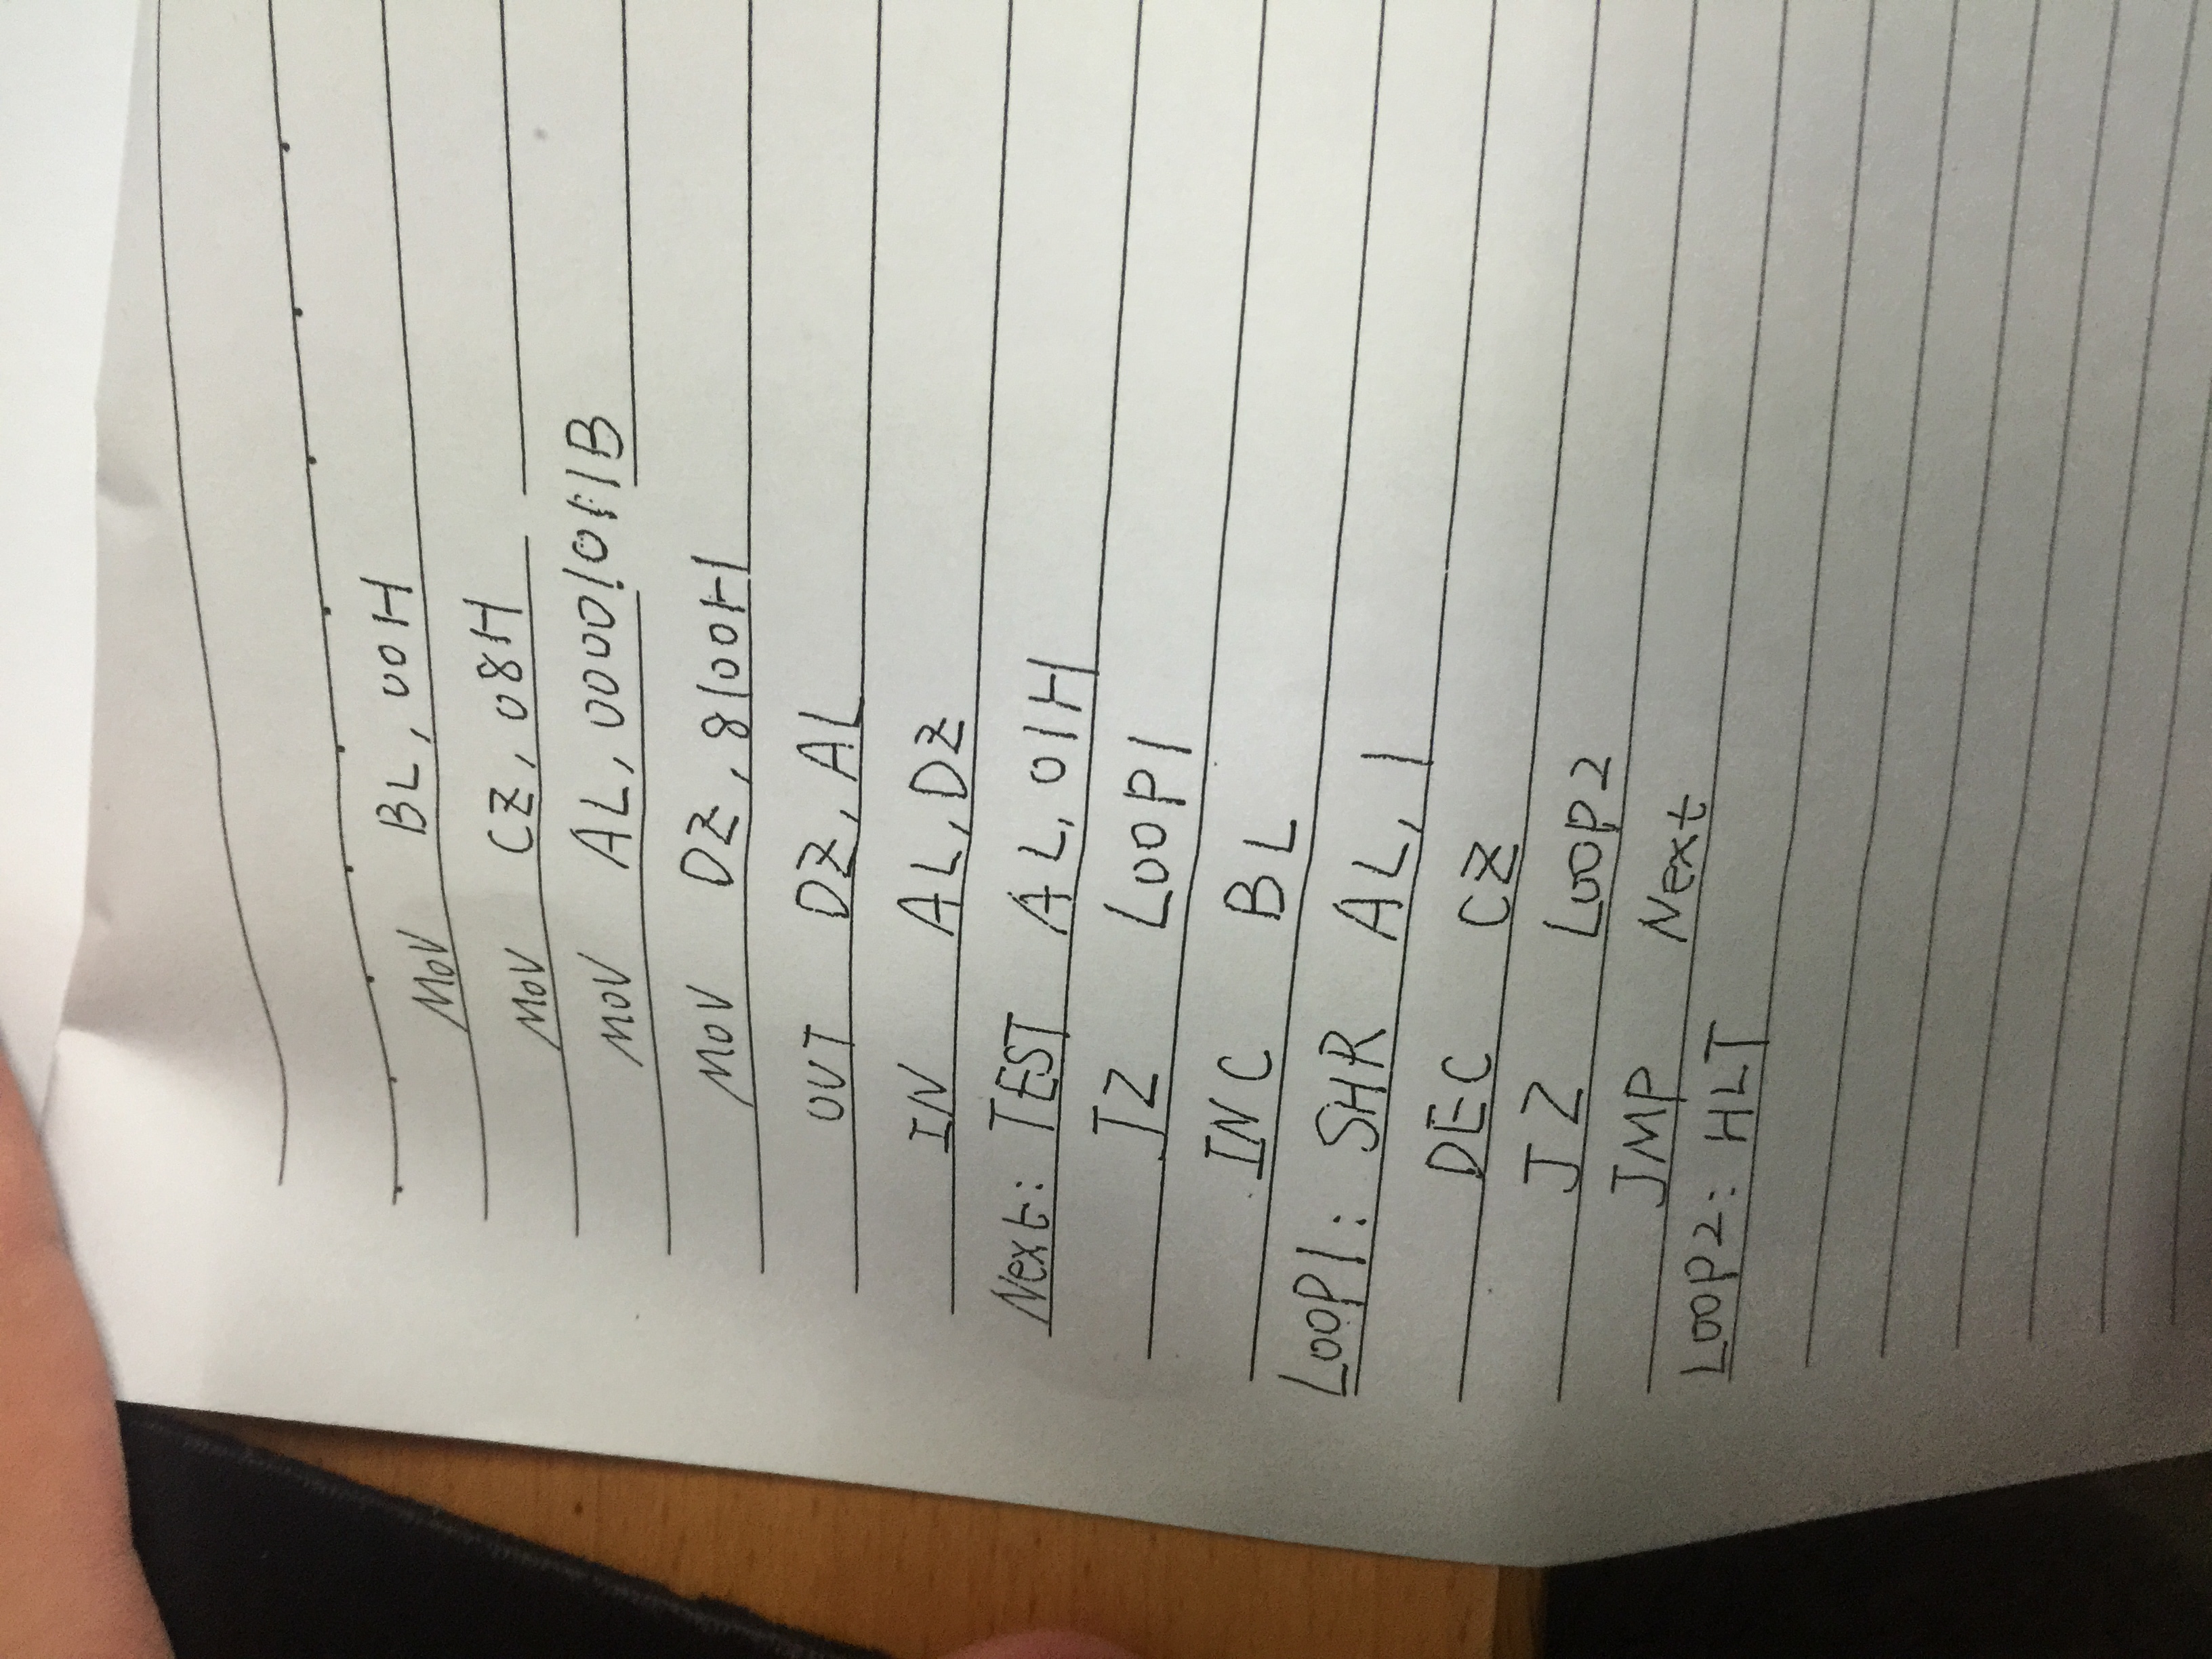 MOV BL, 00H
MOV CZ, 08H
MOV AL, 00001011B
MOV DZ, 8100H
OUT DZ, AL
IN AL, DZ
Next: TEST AL, 01H
JZ LOOP1
INC BL
LOOP1: SHR AL, 1
DEC CZ
JZ LOOP2
JMP Next
LOOP2: HLT